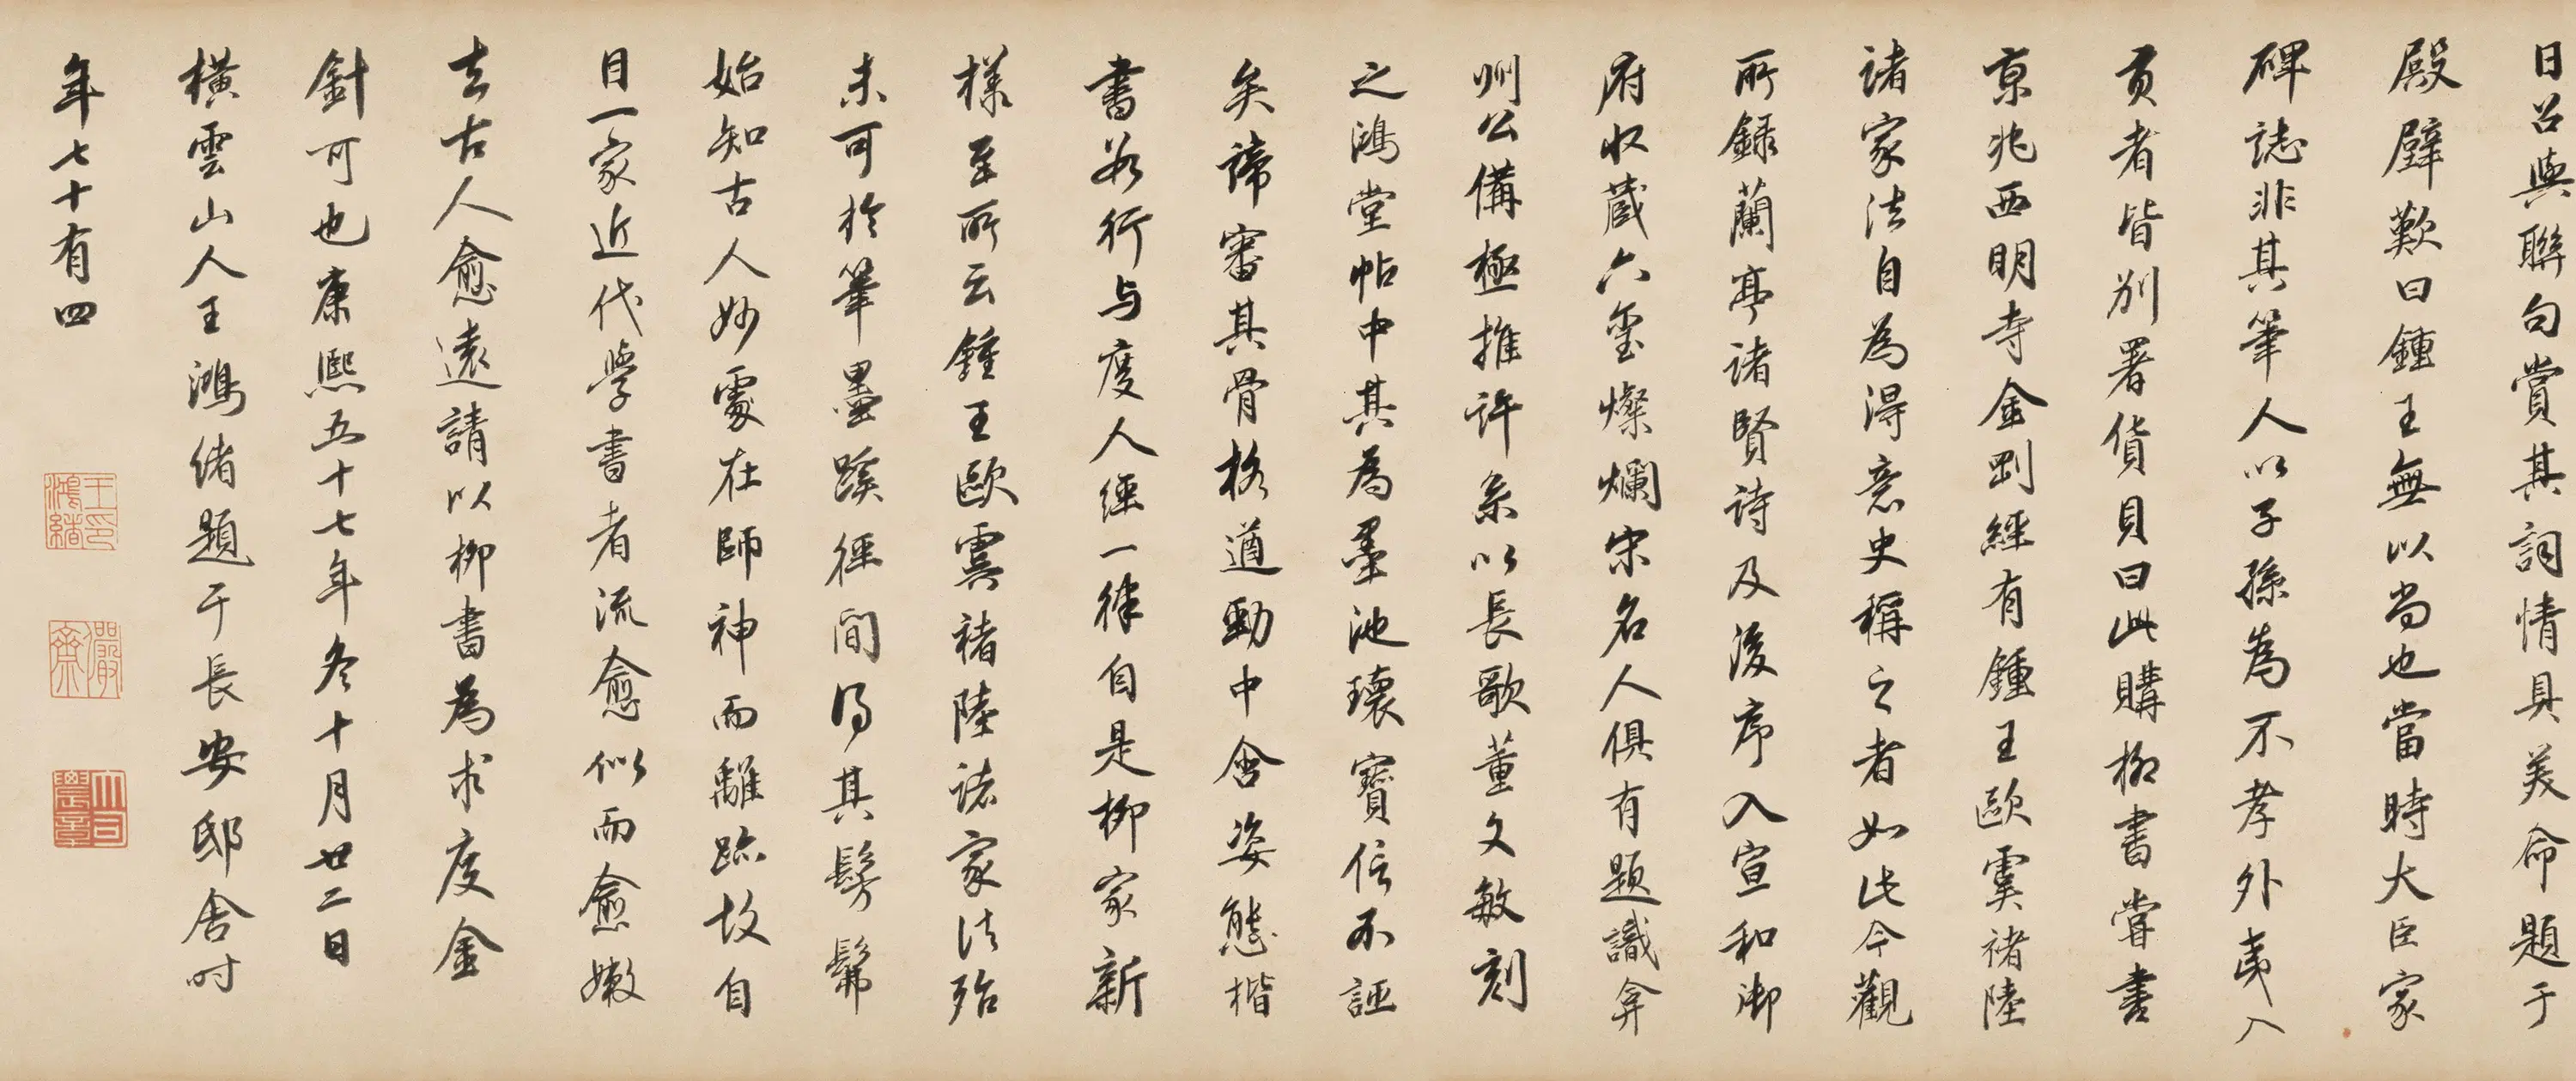 日召與聯句賞其詞情具美命題于
殿壁歎曰鍾王無以尚也當時大臣家
碑誌非其筆人以子孫為不孝外夷入
貢者皆別署貨貝曰此購柳書嘗書
京兆西明寺金剛經有鍾王歐虞褚陸
諸家法自為得意史稱之者如此今觀
所錄蘭亭諸賢詩及後序入宣和御
府收藏六璽燦爛宋名人俱有題識弇
州公備極推許系以長歌董文敏刻
之鴻堂帖中其為墨池瓌寶信不誣
矣諦審其骨格遒勁中含姿態楷
書若行与度人經一律自是柳家新
樣至所云鍾王歐虞褚陸諸家法殆
未可於筆墨蹊徑間得其髣髴
始知古人妙處在師神而離跡故自
目一家近代學書者流愈似而愈嫩
去古人愈遠請以柳書為求度金
針可也康熙五十七年冬十月廿二日
橫雲山人王鴻緒題于長安邸舍时
年七十有四
王鴻緒印
儼齋